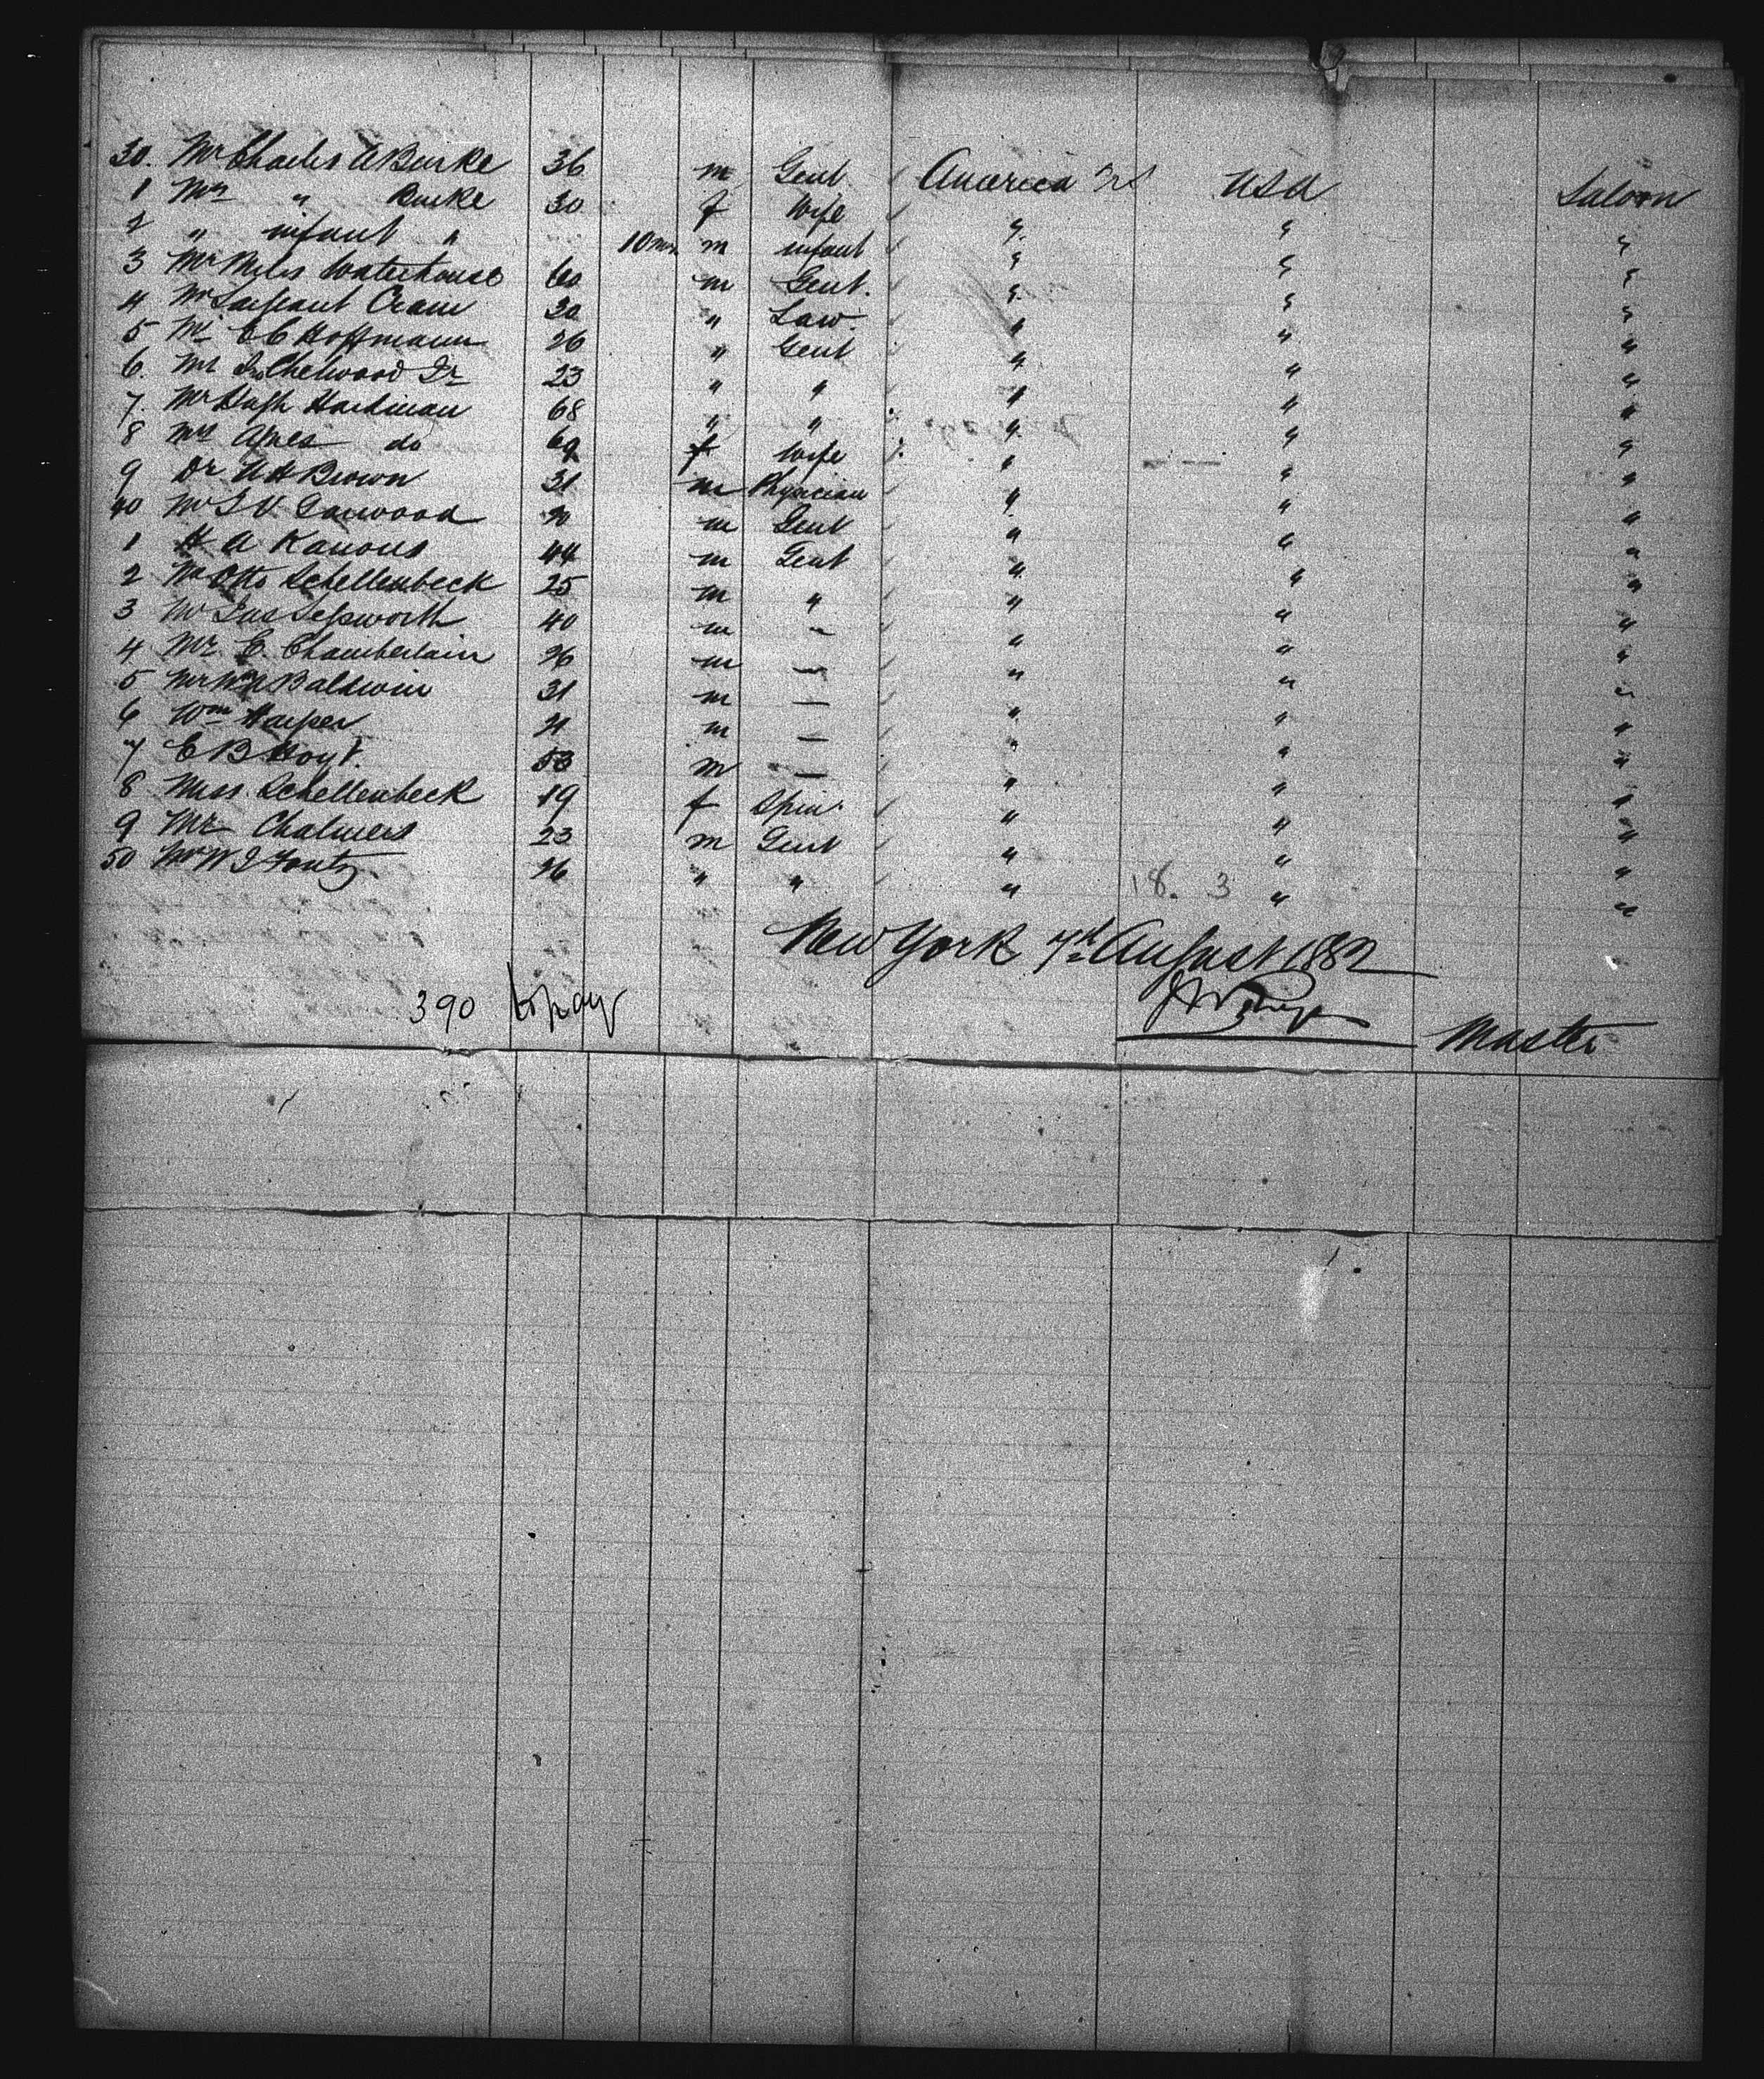 30. Mr Charles A Burke 36 m Gent America USA Saloon
1 Mrs " Burke 30 f Wife " " "
2 " infant " 10 mos m infant " " "
3 Mr Miles Waterhouse 60 m Gent. " " "
4 Mr Sargeant Cram 30 " Law. " " "
5 Mr E C Hoffmann 26 " Gent " " "
6. Mr Chetwood Jr 23 " " " " "
7. Mr Hugh Hardman 68 " " " " "
8 Mrs Agnes do 69 f Wife " " "
9 Dr Brown 31 m Physician " " "
40 Mr Garwood m Gent " " "
1 H A Kanous 44 m Gent " " "
2 Mr Otto Schellenbeck 25 m " " " "
3 Mr Jessworth 40 m " " " "
4 Mr E. Chamberlain 26 m — " " "
5 Mr Wm Baldwin 31 m — " " "
6 Wm Harper 21 m — " " "
7 E B Hoyt. 53 m — " " "
8 Miss Schellenbeck 19 f Spin. " " "
9 Mr Chalmers 23 m Gent " " "
50 Mr W J Foutz 26 " " " " "
18. 3
New York 7th August 1882
390
Master